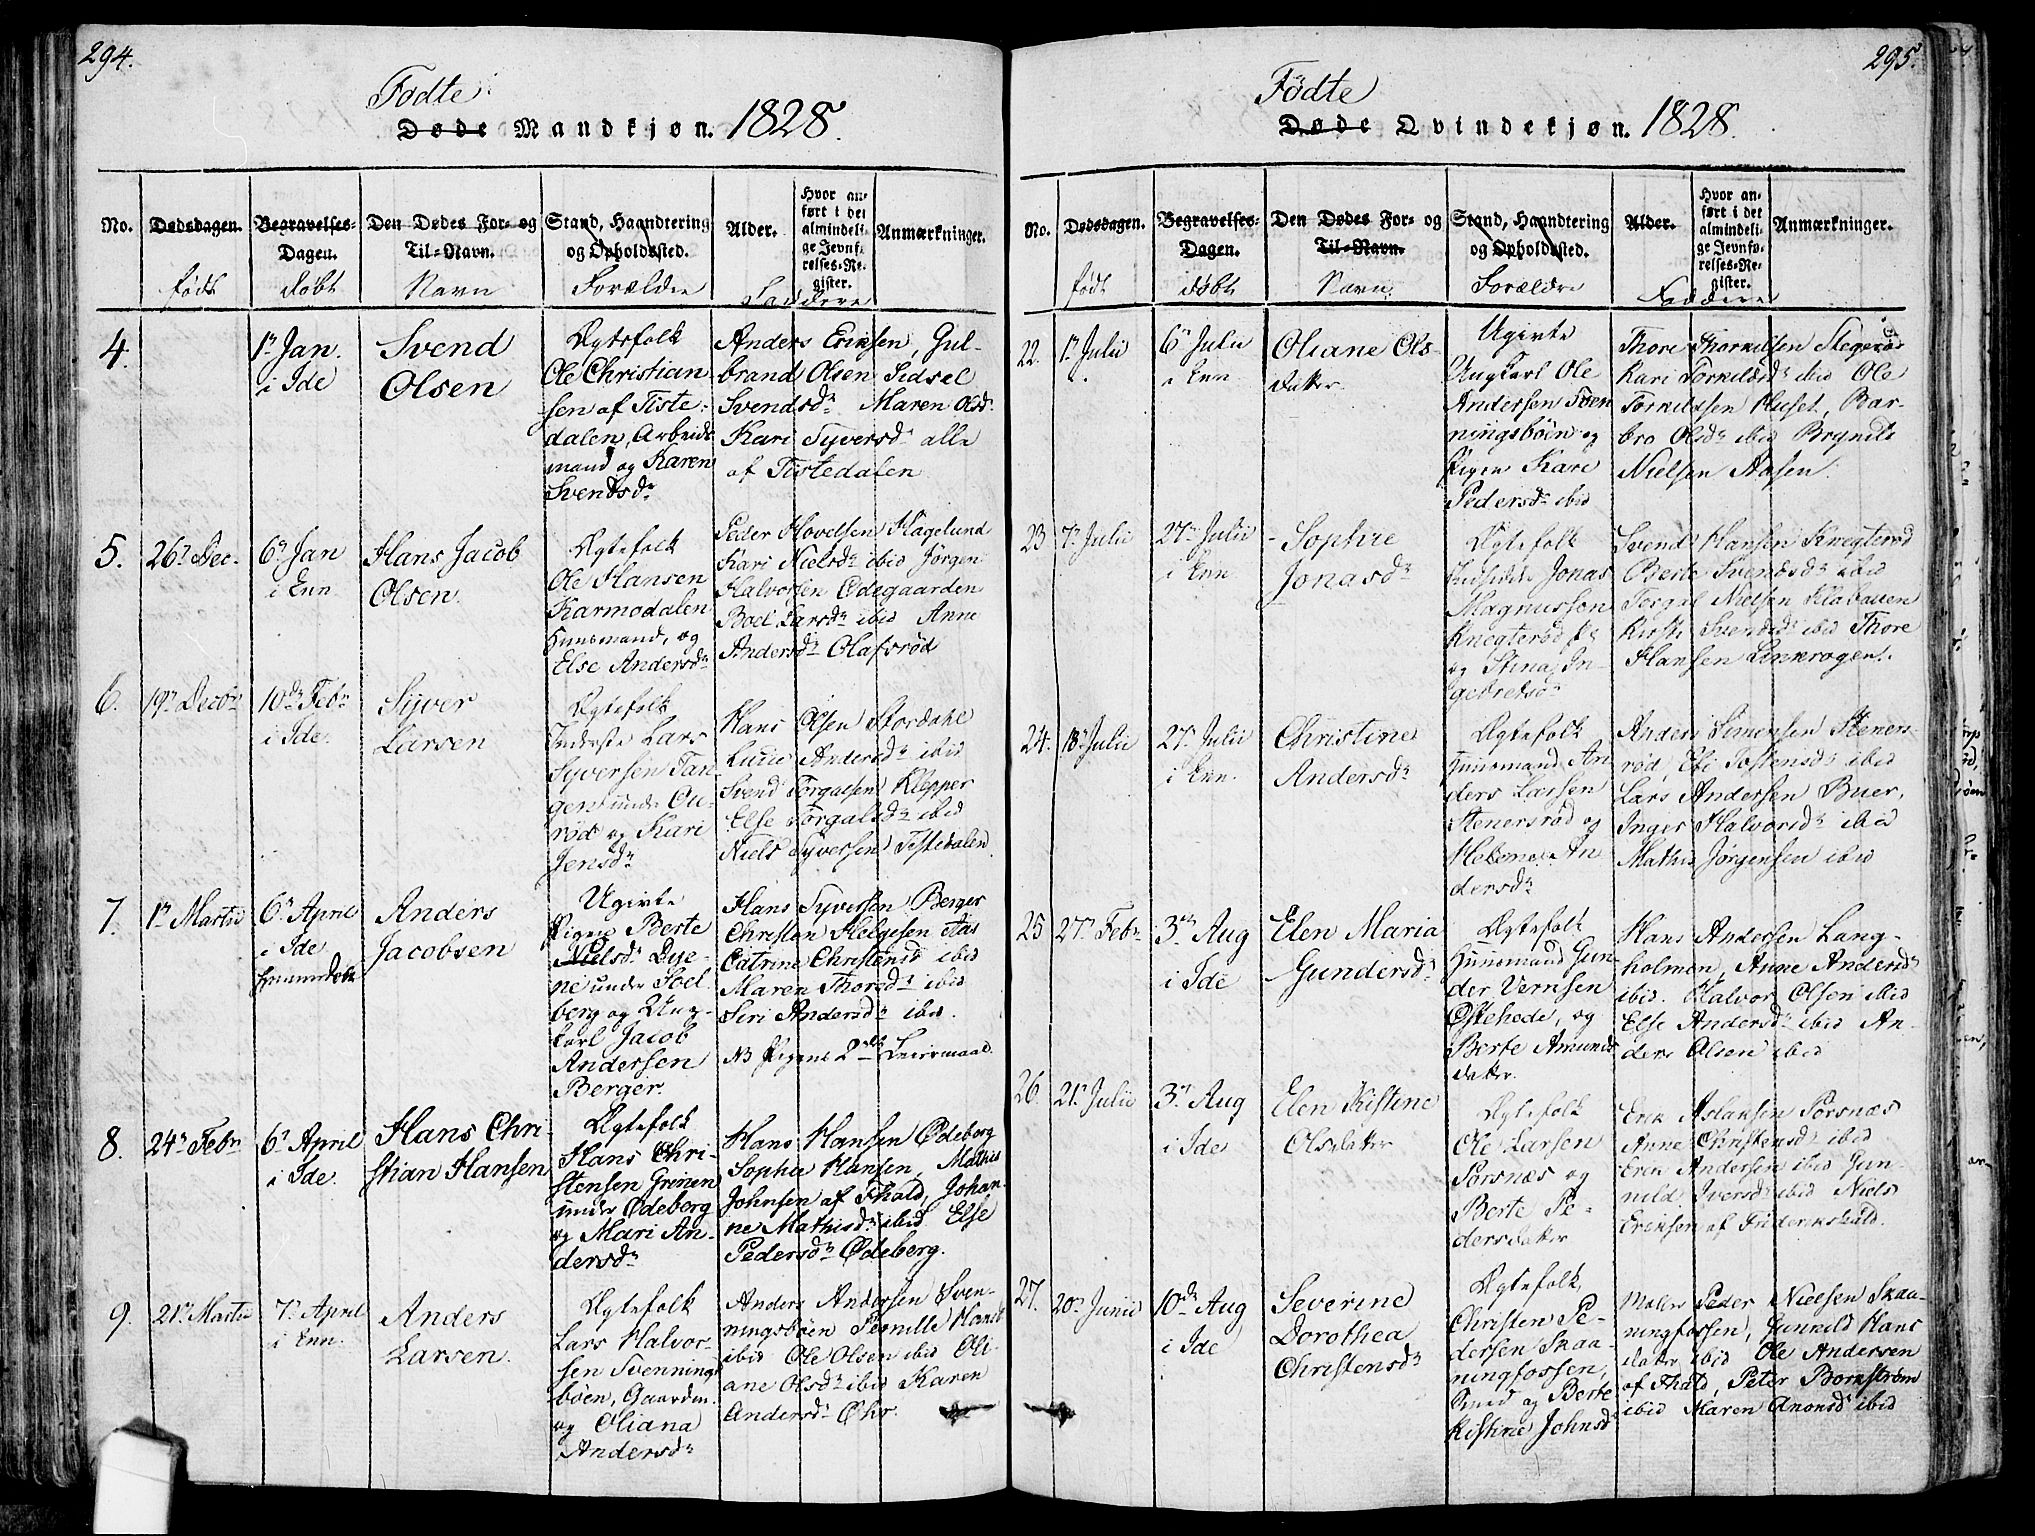 294.
Födte
Døde Mandkjøn. 1828.
No.
Dødsdagen.
født
Begravelses-
Dagen.
døbt
Den Dødes For- og
Til-Navn.
Navn
Stand, Haandtering
og Opholdssted.
Forældre
Alder.
Hvor an-
ført i det
almindeli-
ge Jevnfø-
relses-Re-
gister.
Faddere
Anmærkninger.
4.
1n Jan.
i Ide
Svend
Olsen
Ægtefolk
Ole Christian
sen af Tiste-
dalen, Arbeids
mand og Karen
Svendsdr
Anders Eriksen, Gul-
brand Olsen Sidsel
Svendsdr Maren Olsdr
Kari Syversdr alle
af Tistedalen
5.
26n Dec.
6n Jan
i Enn
Hans Jacob
Olsen.
Ægtefolk
Ole Hansen
Karmodalen
Huusmand, og
Else Andersdr
Peder Hovelsen Hagelund
Kari Nielsdr ibid Jørgen
Halvorsen Ødegaarden
Boel Larsdr ibid Anne
Andersdr Olafsrød
6.
19n Decbr
10de Febr
i Ide.
Syver
Larsen
Ægtefolk
Inderste Lars
Syversen Tan-
gen under Ou-
rød og Kari
Jensdr
Hans Olsen Stordahl
Lucie Andersdr ibid
Svend Torgalsen Klepper
Else Torgalsdr ibid
Niels Syversen Tistedalen
7.
1n Martii
6n April
i Ide
Hiemmedøbt
Anders
Jacobsen
Ugivte
Pigen Berte
Nielsdr Dye-
ne under Soel
berg og Ung-
karl Jacob
Andersen
Berger.
Hans Syversen Berger
Christen Helgesen Aas
Catrine Christensd ibid
Maren Thorsdr ibid
Siri Andersdr ibid.
NB Pigens 2det Leiermaal.
8.
24n Febr
6n April
i Ide.
Hans Chri-
stian Hansen
Ægtefolk
Hans Chri-
stensen Grinen
under Ødeborg
og Mari An-
dersdr
Hans Hansen Ødeborg
Sophie Hansen, Mathis
Johnsen af Fhald, Johan-
ne Mathisdr ibid Else
Pedersdr Ødeberg.
9.
21n Martii
7n April
i Enn.
Anders
Larsen.
Ægtefolk
Lars Halvor-
sen Svennings
böen, Gaardm.
og Oliana
Andersdr
Anders Andersen Sven-
ningsböen Pernille Hansd
ibid Ole Olsen ibid Oli-
ane Olsdr ibid Karen
Andersdr Øhr.
295.
Födte
Døde Qvindekjøn. 1828.
No.
Dødsdagen.
født
Begravelses-
Dagen.
døbt
Den Dødes For- og
Til-Navn.
Navn
Stand, Haandtering
og Opholdssted.
Forældre
Alder.
Hvor an-
ført i det
almindeli-
ge Jevnfø-
relses-Re-
gister.
Faddere
Anmærkninger.
22.
1n Julii
6n Julii
i Enn
Oliane Ols-
datter.
Ugivte
Ungkarl Ole
Andersen Sven
ningsböen og
Pigen Kari
Pedersdr ibid
Thore Thorkilsen
Kari Torkildsdr ibid Ole
Torkildsen Huset, Bar-
bro Olsdr ibid Brynild
Nielsen Aasen.
23
7n Julii
27n Julii
i Enn.
Sophie
Jonasdr
Ægtefolk
Jonas
Magnussen
Knegterød
og Stina In-
Svend Hansen Knegterød
Berte Svendsdr ibid
Torgal Nielsen
Kirsti Svendsd ibid Thore
Hansen Linkrogen.
24.
18n Julii
27n Julii
i Enn.
Christine
Andersdr
Ægtefolk
Huusmand An
ders Larsen
Stenersrød og
Helene An
dersdr
Anders Simensen Steners-
rød, Ebi Tostensdr ibid
Lars Andersen Buer,
Inger Halvorsdr ibid
Mathis Jørgensen ibid
25
27n Febr.
3n Aug
i Ide
Elen Maria
Gundersdr
Ægtefolk
Huusmand Gun-
der Vernsen
Østehede, og
Berte Amunds
datter.
Hans Andersen Lang-
holmen, Anne Andersdr
ibid. Halvor Olsen ibid
Else Andersdr ibid An-
ders Olsen ibid
26.
21n Julii
3n Aug
i Ide
Elen Kistine
Olsdatter
Ægtefolk
Ole Larsen
Sorsnæs og
Berte Pe-
dersdatter
Erik Aslaksen Sorsnæs
Anne Christensd ibid
Erik Andersen ibid Gun-
nild Iversdr ibid Niels
Eriksen af Friderikshald.
27.
20n Junii
10de Aug
i Ide
Severine
Dorothea
Christensdr
Ægtefolk,
Christen Pe-
dersen Skaa-
ningfossen,
Smed og Berte
Kistine Johnsd
Møller Peder Nielsen Skaa-
ningfossen, Gunnild Hans
datter ibid Ole Andersen
af Fhald, Peter Bornstrøm
ibid Maren Ononsd ibid